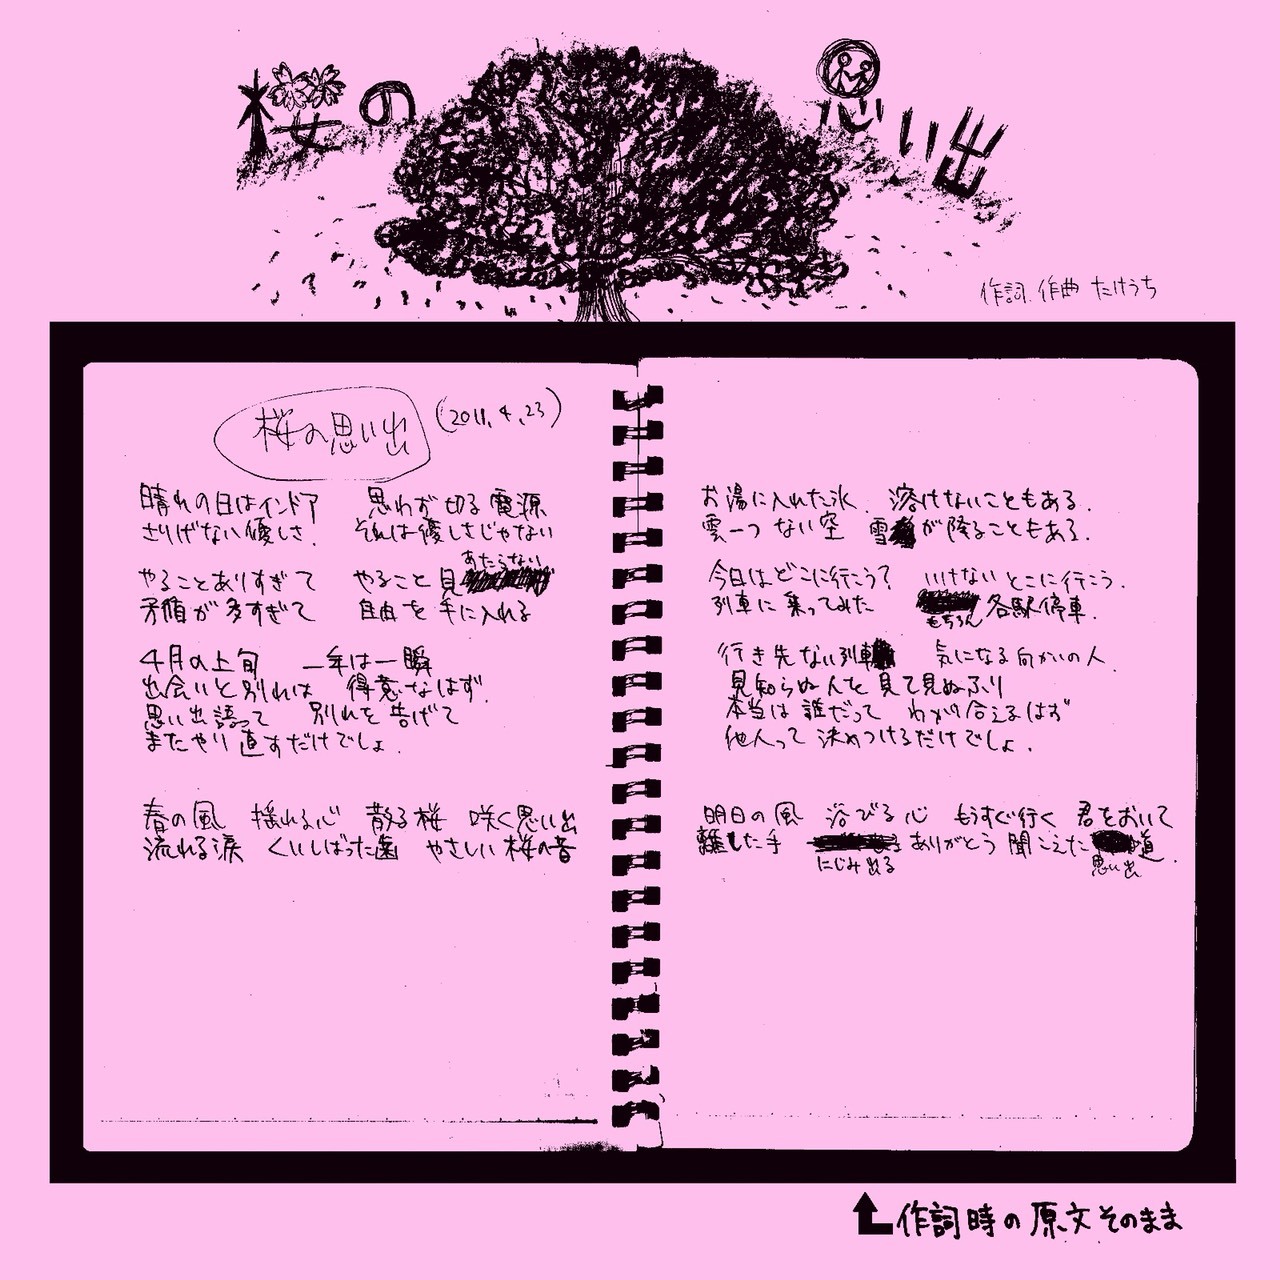 桜の思い出
作詞.作曲 たけうち
桜の思い出 (2011.4.23)
晴れの日はインドア 思わず切る電源
さりげない優しさ. それは優しさじゃない
やることありすぎて やること見あたらない
矛盾が多すぎて 自由を手に入れる
4月の上旬 一年は一瞬
出会いと別れは 得意なはず.
思い出語って 別れを告げて
またやり直すだけでしょ.
春の風 揺れる心 散る桜 咲く思い出
流れる涙 くいしばった歯 やさしい桜の音
お湯に入れた氷. 溶けないこともある.
雲一つない空 雪が降ることもある.
今日はどこに行こう? いけないとこに行こう.
列車に乗ってみた もちろん各駅停車.
行き先ない列車 気になる向かいの人.
見知らぬ人を見て見ぬふり
本当は誰だって わかり合えるはず
他人って決めつけるだけでしょ.
明日の風 浴びる心 もうすぐ行く 君をおいて
離した手 にじみ出る ありがとう 聞こえた 思い出 道.
作詞時の原文そのまま